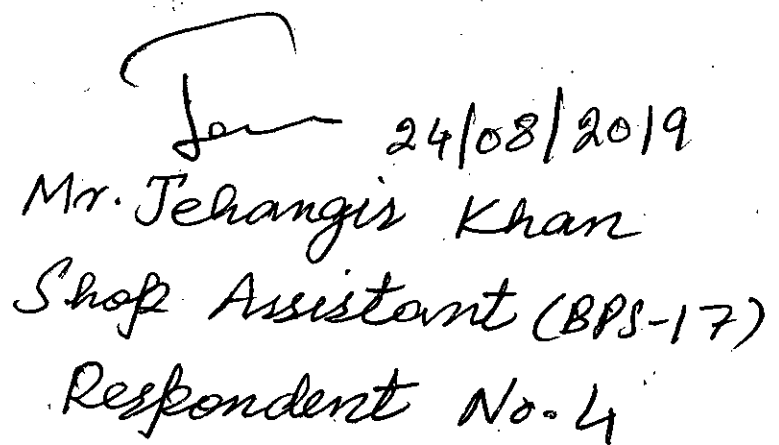 24/08/2019
Mr. Jehangir Khan
Shop Assistant (BPS-17)
Respondent No. 4